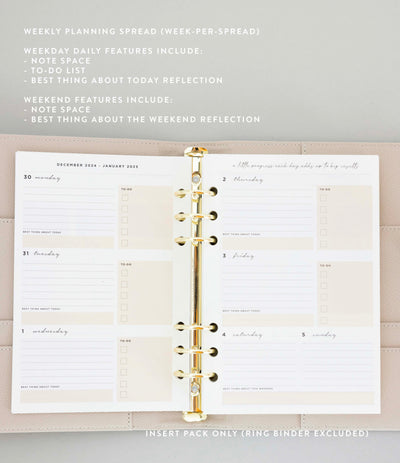 WEEKLY PLANNING SPREAD (WEEK-PER-SPREAD)
WEEKDAY DAILY FEATURES INCLUDE:
- NOTE SPACE
- TO-DO LIST
- BEST THING ABOUT TODAY REFLECTION
WEEKEND FEATURES INCLUDE:
- NOTE SPACE
- BEST THING ABOUT THE WEEKEND REFLECTION
DECEMBER 2024 - JANUARY 2025
30 monday
TO-DO
BEST THING ABOUT TODAY
31 tuesday
TO-DO
BEST THING ABOUT TODAY
1 wednesday
TO-DO
BEST THING ABOUT TODAY
a little progress each day adds up to big results
2 thursday
TO-DO
BEST THING ABOUT TODAY
3 friday
TO-DO
BEST THING ABOUT TODAY
4 saturday 5 sunday
BEST THING ABOUT THIS WEEKEND
INSERT PACK ONLY (RING BINDER EXCLUDED)